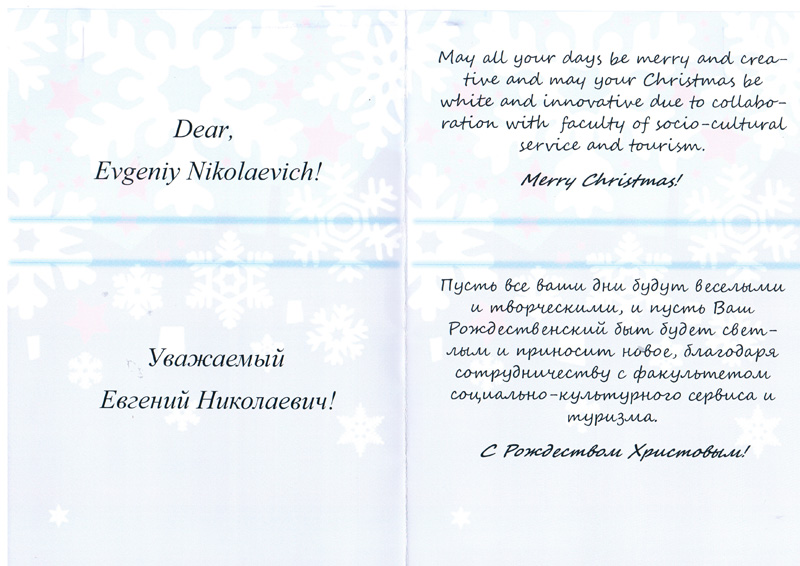 Dear,
Evgeniy Nikolaevich!
Уважаемый
Евгений Николаевич!
May all your days be merry and crea-
tive and may your Christmas be
white and innovative due to collabo-
ration with faculty of socio-cultural
service and tourism.
Merry Christmas!
Пусть все ваши дни будут веселыми
и творческими, и пусть Ваш
Рождественский быт будет свет-
лым и приносит новое, благодаря
сотрудничеству с факультетом
социально-культурного сервиса и
туризма.
С Рождеством Христовым!